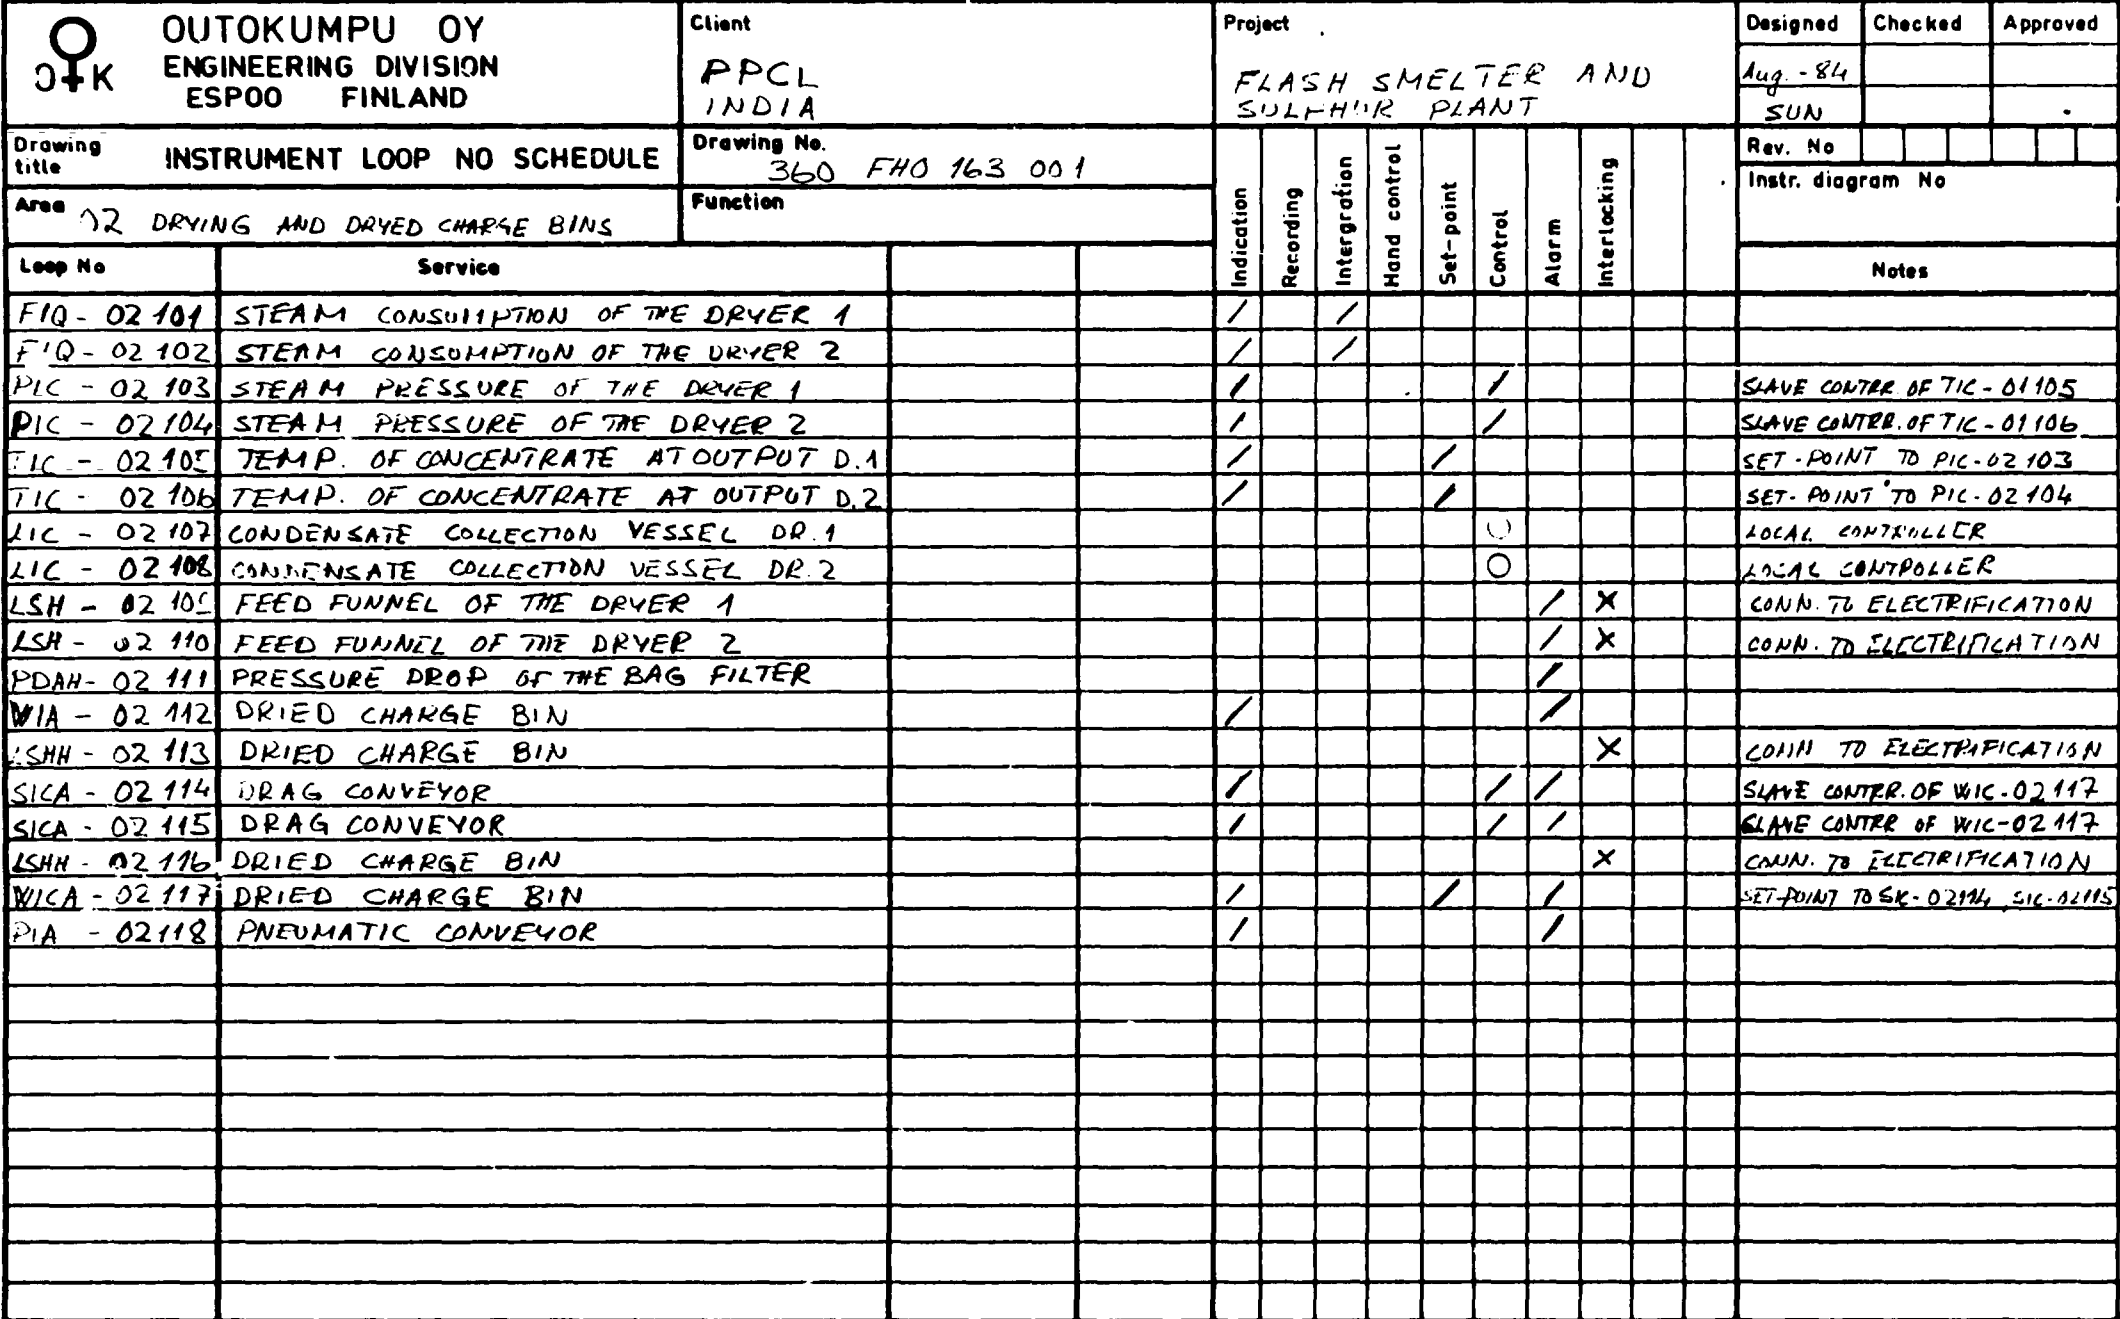 OUTOKUMPU OY
ENGINEERING DIVISION
ESPOO FINLAND
Client
PPCL
INDIA
Project
FLASH SMELTER AND
SULPHUR PLANT
Designed Checked Approved
Aug. - 84
SUN
Drawing title INSTRUMENT LOOP NO SCHEDULE
Drawing No.
360 FHO 163 001
Rev. No
Instr. diagram No
Area 02 DRYING AND DRYED CHARGE BINS
Function
Loop No Service Indication Recording Intergration Hand control Set-point Control Alarm Interlocking Notes
FIQ - 02 101 STEAM CONSUMPTION OF THE DRYER 1 / /
FIQ - 02 102 STEAM CONSUMPTION OF THE DRYER 2 / /
PIC - 02 103 STEAM PRESSURE OF THE DRYER 1 / / SLAVE CONTRR OF TIC - 01105
PIC - 02 104 STEAM PRESSURE OF THE DRYER 2 / / SLAVE CONTRR. OF TIC - 01106
TIC - 02 105 TEMP. OF CONCENTRATE AT OUTPUT D.1 / / SET-POINT TO PIC-02 103
TIC - 02 106 TEMP. OF CONCENTRATE AT OUTPUT D.2 / / SET-POINT TO PIC-02 104
LIC - 02 107 CONDENSATE COLLECTION VESSEL DR.1 O LOCAL CONTROLLER
LIC - 02 108 CONDENSATE COLLECTION VESSEL DR.2 O LOCAL CONTROLLER
LSH - 02 109 FEED FUNNEL OF THE DRYER 1 / X CONN. TO ELECTRIFICATION
LSH - 02 110 FEED FUNNEL OF THE DRYER 2 / X CONN. TO ELECTRIFICATION
PDAH - 02 111 PRESSURE DROP OF THE BAG FILTER /
WIA - 02 112 DRIED CHARGE BIN / /
LSHH - 02 113 DRIED CHARGE BIN X CONN TO ELECTRIFICATION
SICA - 02 114 DRAG CONVEYOR / / / SLAVE CONTRR. OF WIC-02 117
SICA - 02 115 DRAG CONVEYOR / / / SLAVE CONTRR OF WIC-02 117
LSHH - 02 116 DRIED CHARGE BIN X CONN. TO ELECTRIFICATION
WICA - 02 117 DRIED CHARGE BIN / / / SET-POINT TO SIC-02114, SIC-02115
PIA - 02118 PNEUMATIC CONVEYOR / /